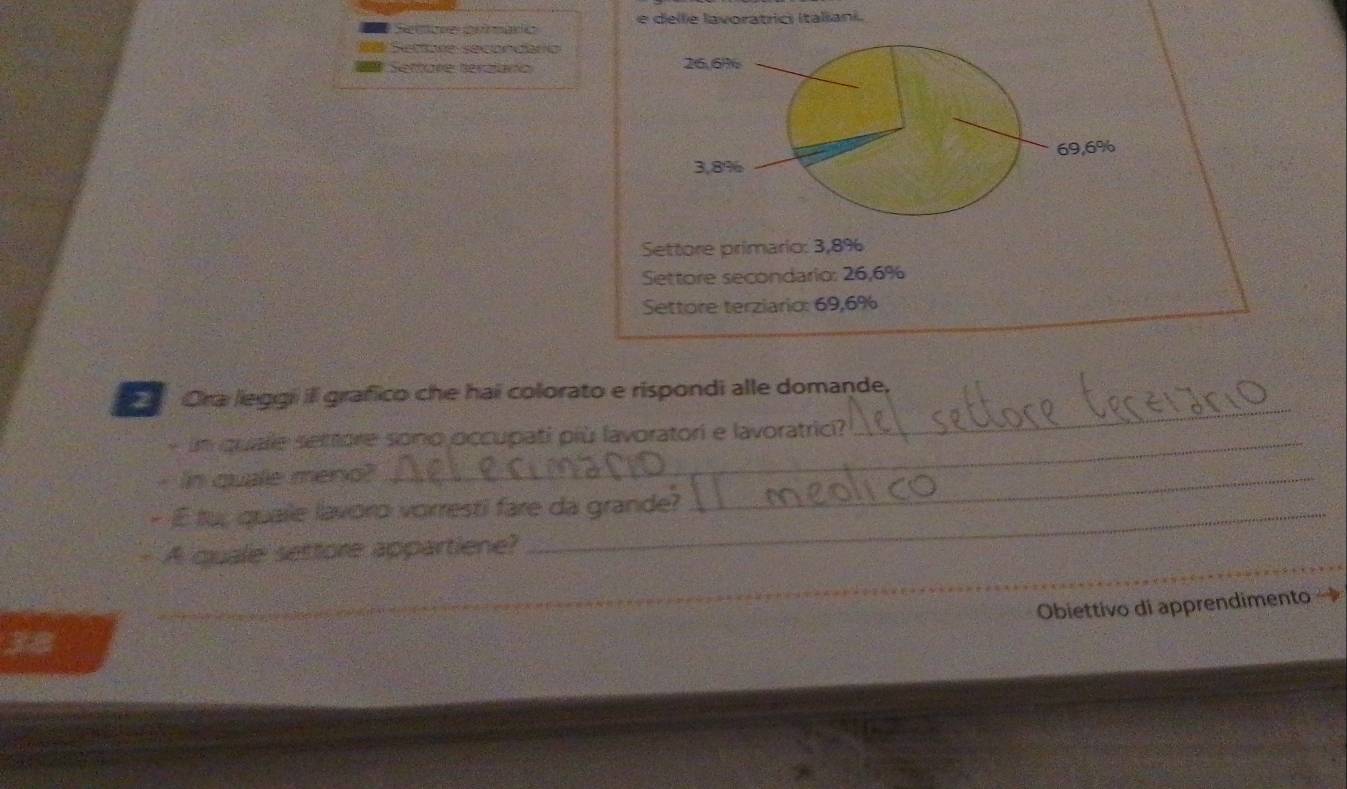 e delle lavoratrici italiani.
Settore primario
Settore secondario
Settore terziario
26,6%
69,6%
3,8%
Settore primario: 3,8%
Settore secondario: 26,6%
Settore terziario: 69,6%
2 Ora leggi il grafico che hai colorato e rispondi alle domande.
- In quale settore sono occupati più lavoratori e lavoratrici? Nel settore terziario
- In quale meno? Nel primario
- E tu, quale lavoro vorresti fare da grande? Il medico
- A quale settore appartiene?
Obiettivo di apprendimento
38